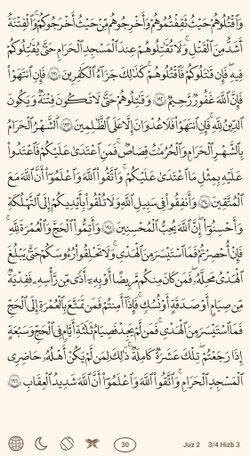 وَٱقۡتُلُوهُمۡ حَيۡثُ ثَقِفۡتُمُوهُمۡ وَأَخۡرِجُوهُم مِّنۡ حَيۡثُ أَخۡرَجُوكُمۡۚ وَٱلۡفِتۡنَةُ
أَشَدُّ مِنَ ٱلۡقَتۡلِۚ وَلَا تُقَٰتِلُوهُمۡ عِندَ ٱلۡمَسۡجِدِ ٱلۡحَرَامِ حَتَّىٰ يُقَٰتِلُوكُمۡ
فِيهِۖ فَإِن قَٰتَلُوكُمۡ فَٱقۡتُلُوهُمۡۗ كَذَٰلِكَ جَزَآءُ ٱلۡكَٰفِرِينَ ١٩١ فَإِنِ ٱنتَهَوۡاْ
فَإِنَّ ٱللَّهَ غَفُورٞ رَّحِيمٞ ١٩٢ وَقَٰتِلُوهُمۡ حَتَّىٰ لَا تَكُونَ فِتۡنَةٞ وَيَكُونَ
ٱلدِّينُ لِلَّهِۖ فَإِنِ ٱنتَهَوۡاْ فَلَا عُدۡوَٰنَ إِلَّا عَلَى ٱلظَّٰلِمِينَ ١٩٣ ٱلشَّهۡرُ ٱلۡحَرَامُ
بِٱلشَّهۡرِ ٱلۡحَرَامِ وَٱلۡحُرُمَٰتُ قِصَاصٞۚ فَمَنِ ٱعۡتَدَىٰ عَلَيۡكُمۡ فَٱعۡتَدُواْ
عَلَيۡهِ بِمِثۡلِ مَا ٱعۡتَدَىٰ عَلَيۡكُمۡۚ وَٱتَّقُواْ ٱللَّهَ وَٱعۡلَمُوٓاْ أَنَّ ٱللَّهَ مَعَ
ٱلۡمُتَّقِينَ ١٩٤ وَأَنفِقُواْ فِي سَبِيلِ ٱللَّهِ وَلَا تُلۡقُواْ بِأَيۡدِيكُمۡ إِلَى ٱلتَّهۡلُكَةِ
وَأَحۡسِنُوٓاْۚ إِنَّ ٱللَّهَ يُحِبُّ ٱلۡمُحۡسِنِينَ ١٩٥ وَأَتِمُّواْ ٱلۡحَجَّ وَٱلۡعُمۡرَةَ لِلَّهِۚ
فَإِنۡ أُحۡصِرۡتُمۡ فَمَا ٱسۡتَيۡسَرَ مِنَ ٱلۡهَدۡيِۖ وَلَا تَحۡلِقُواْ رُءُوسَكُمۡ حَتَّىٰ يَبۡلُغَ
ٱلۡهَدۡيُ مَحِلَّهُۥۚ فَمَن كَانَ مِنكُم مَّرِيضًا أَوۡ بِهِۦٓ أَذٗى مِّن رَّأۡسِهِۦ فَفِدۡيَةٞ
مِّن صِيَامٍ أَوۡ صَدَقَةٍ أَوۡ نُسُكٖۚ فَإِذَآ أَمِنتُمۡ فَمَن تَمَتَّعَ بِٱلۡعُمۡرَةِ إِلَى ٱلۡحَجِّ
فَمَا ٱسۡتَيۡسَرَ مِنَ ٱلۡهَدۡيِۚ فَمَن لَّمۡ يَجِدۡ فَصِيَامُ ثَلَٰثَةِ أَيَّامٖ فِي ٱلۡحَجِّ وَسَبۡعَةٍ
إِذَا رَجَعۡتُمۡۗ تِلۡكَ عَشَرَةٞ كَامِلَةٞۗ ذَٰلِكَ لِمَن لَّمۡ يَكُنۡ أَهۡلُهُۥ حَاضِرِي
ٱلۡمَسۡجِدِ ٱلۡحَرَامِۚ وَٱتَّقُواْ ٱللَّهَ وَٱعۡلَمُوٓاْ أَنَّ ٱللَّهَ شَدِيدُ ٱلۡعِقَابِ ١٩٦
30 Juz 2 3/4 Hizb 3